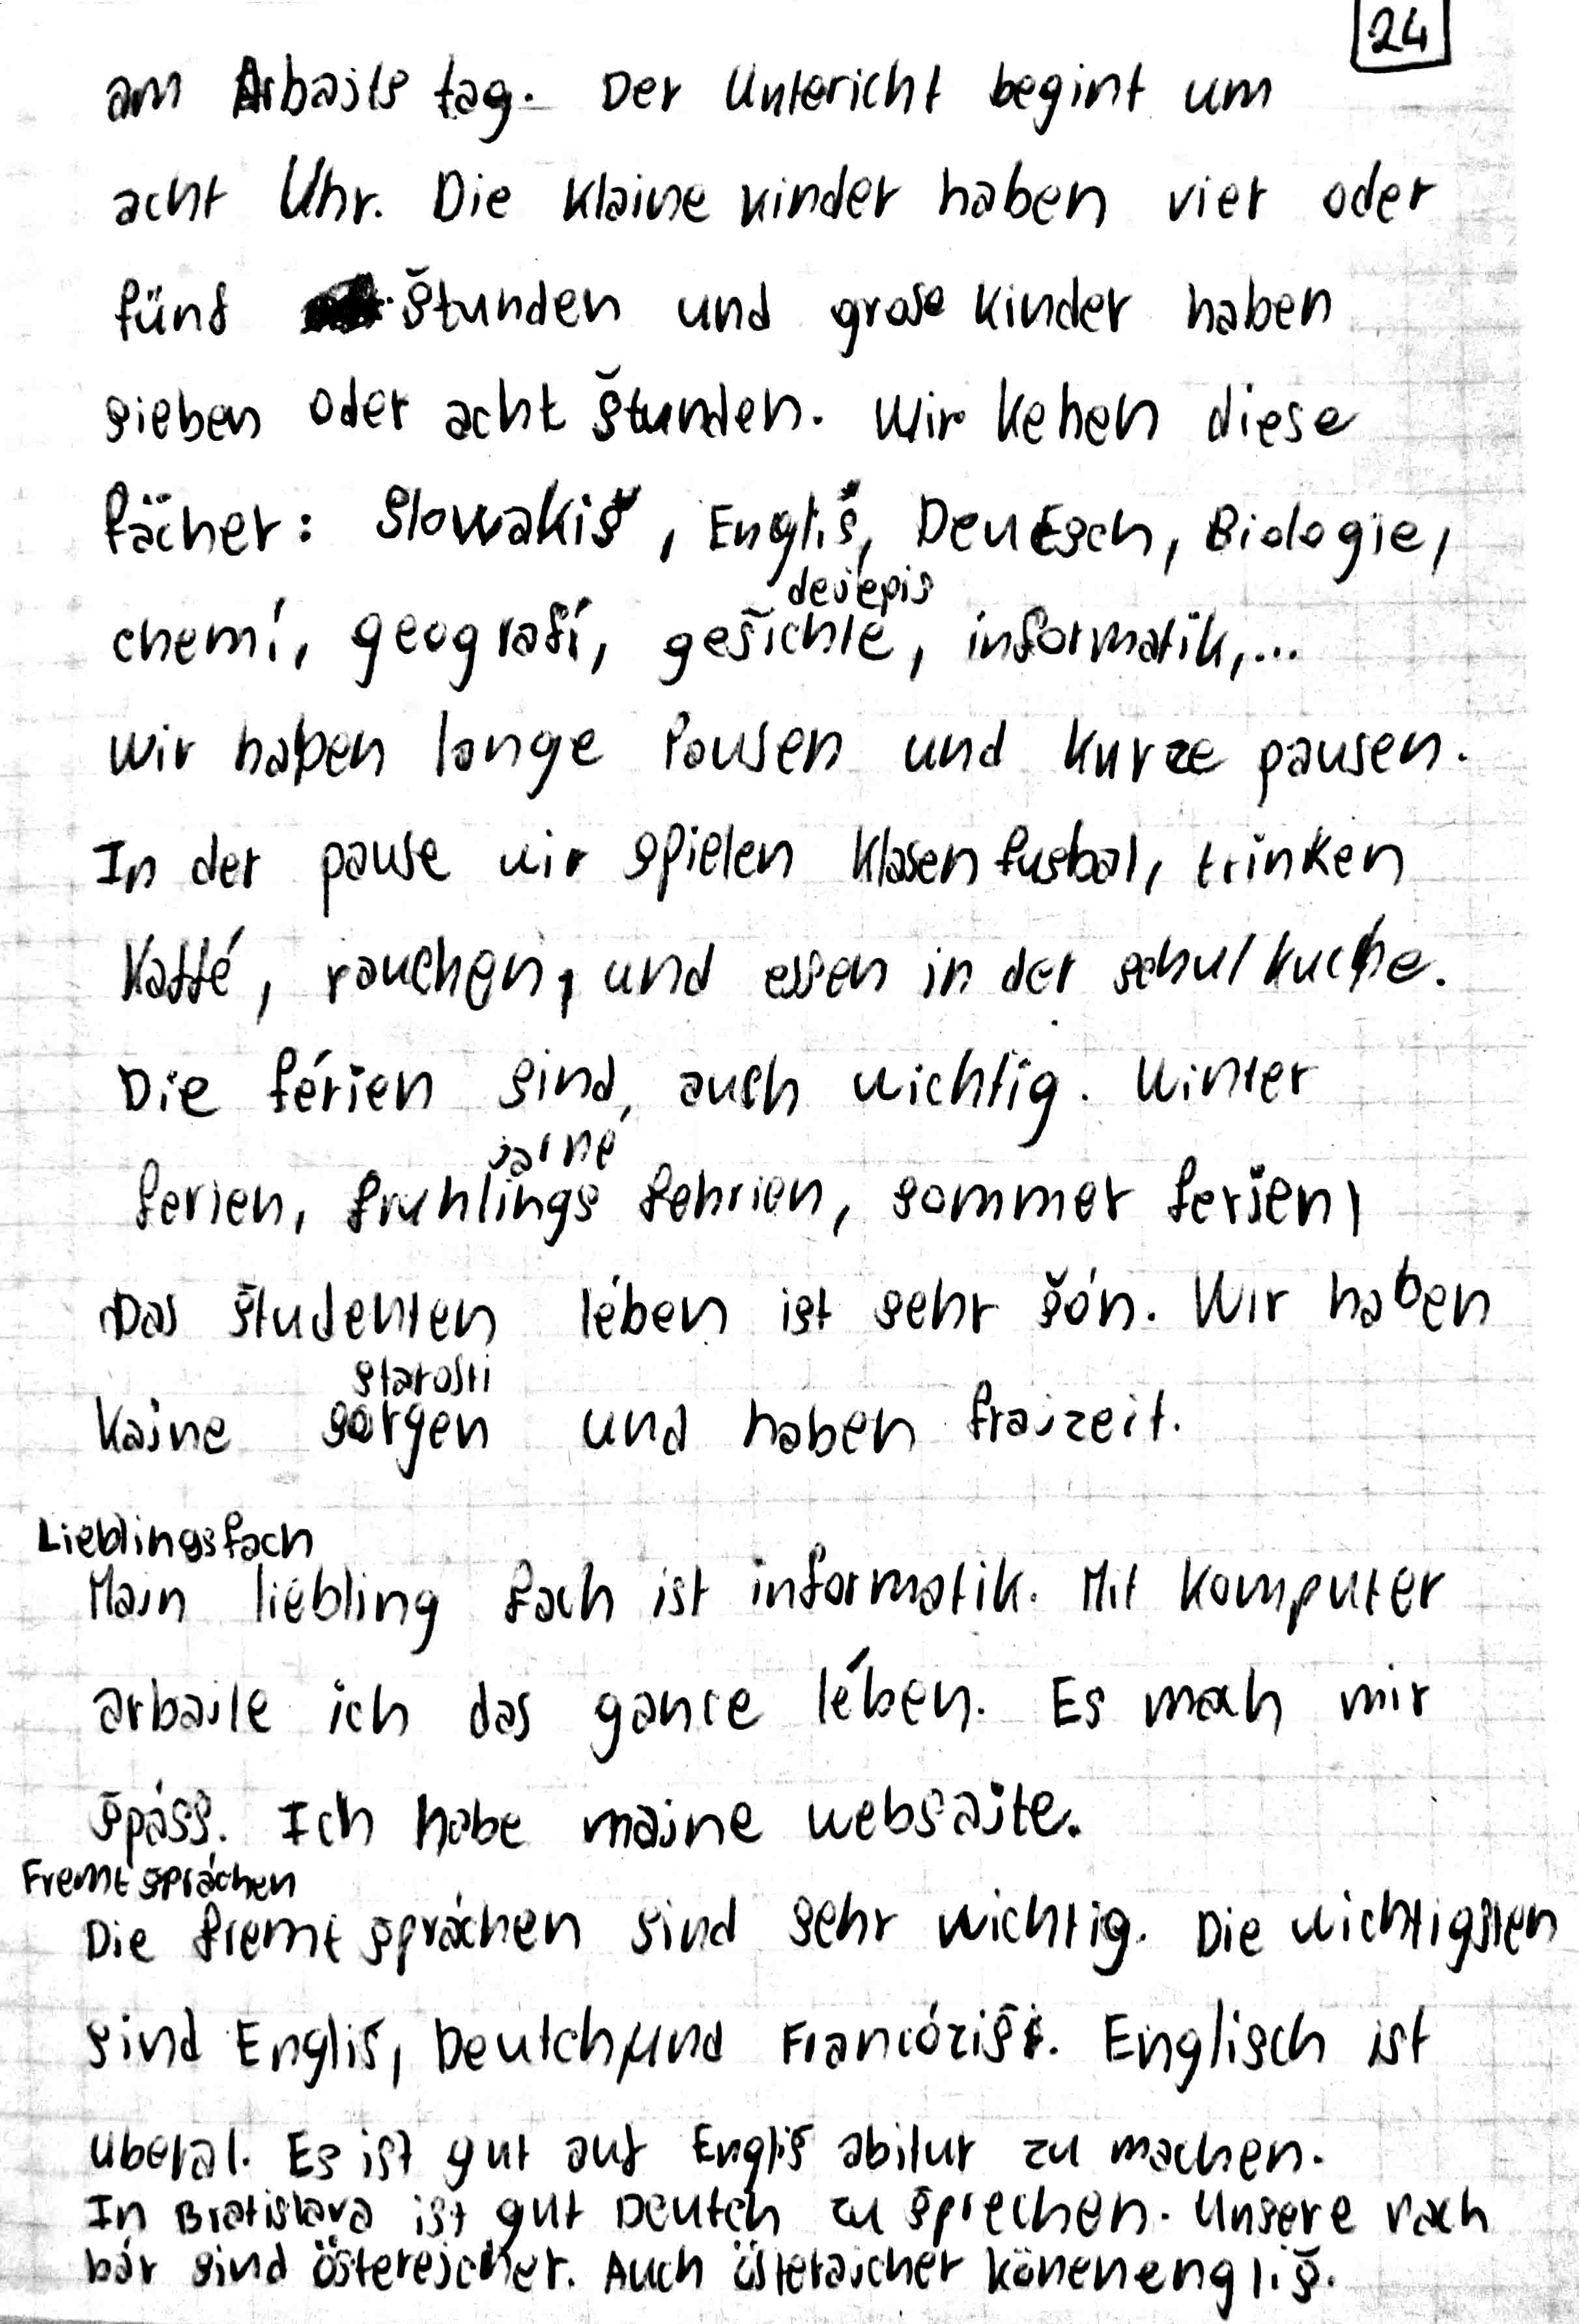 24
am Arbajts tag. Der Untericht begint um
acht Uhr. Die klaine kinder haben vier oder
fünf štunden und grose kinder haben
sieben oder acht štunden. Wir kehen diese
fächer: Slowakiš, Engliš, Deutsch, Biologie,
dejepis
chemí, geografí, gešichte, informatik,...
wir haben lange Pausen und kurze pausen.
In der pause wir spielen klasen fusbal, trinken
Kaffé, rauchen, und essen in der schul kuche.
Die férien sind auch wichtig. Winter
jarné
ferien, fruhlings fehrien, sommer ferien,
Das študenten lében ist sehr šón. Wir haben
starosti
Kajne sorgen und haben frajzeit.
Lieblingsfach
Majn liebling fach ist informatik. Mit komputer
arbajte ich das gance lében. Es mach mir
špáss. Ich habe majne websajte.
Fremt špráchen
Die fremt šprächen sind sehr wichtig. Die wichtigsten
sind Engliš, Deutch und Francóziš. Englisch ist
uberal. Es ist gut auf Engliš abitur zu machen.
In Bratislava ist gut Deutch zu šprechen. Unsere nach
bár sind östereicher. Auch österajcher könen engliš.